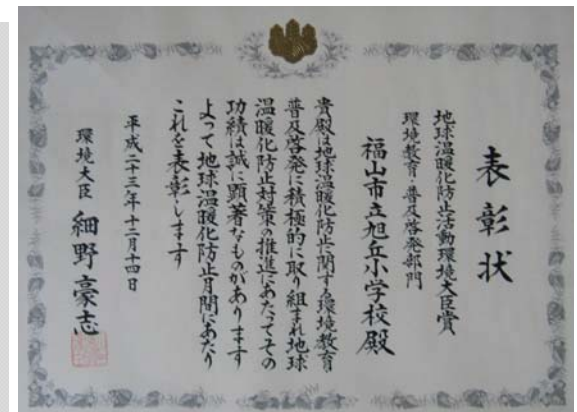 表彰状
地球温暖化防止活動環境大臣賞
環境教育・普及啓発部門
福山市立旭丘小学校殿
貴殿は地球温暖化防止に関する環境教育
普及啓発に積極的に取り組まれ地球
温暖化防止対策の推進にあたってその
功績は誠に顕著なものがあります
よって地球温暖化防止月間にあたり
これを表彰します
平成二十三年十二月十四日
環境大臣 細野豪志